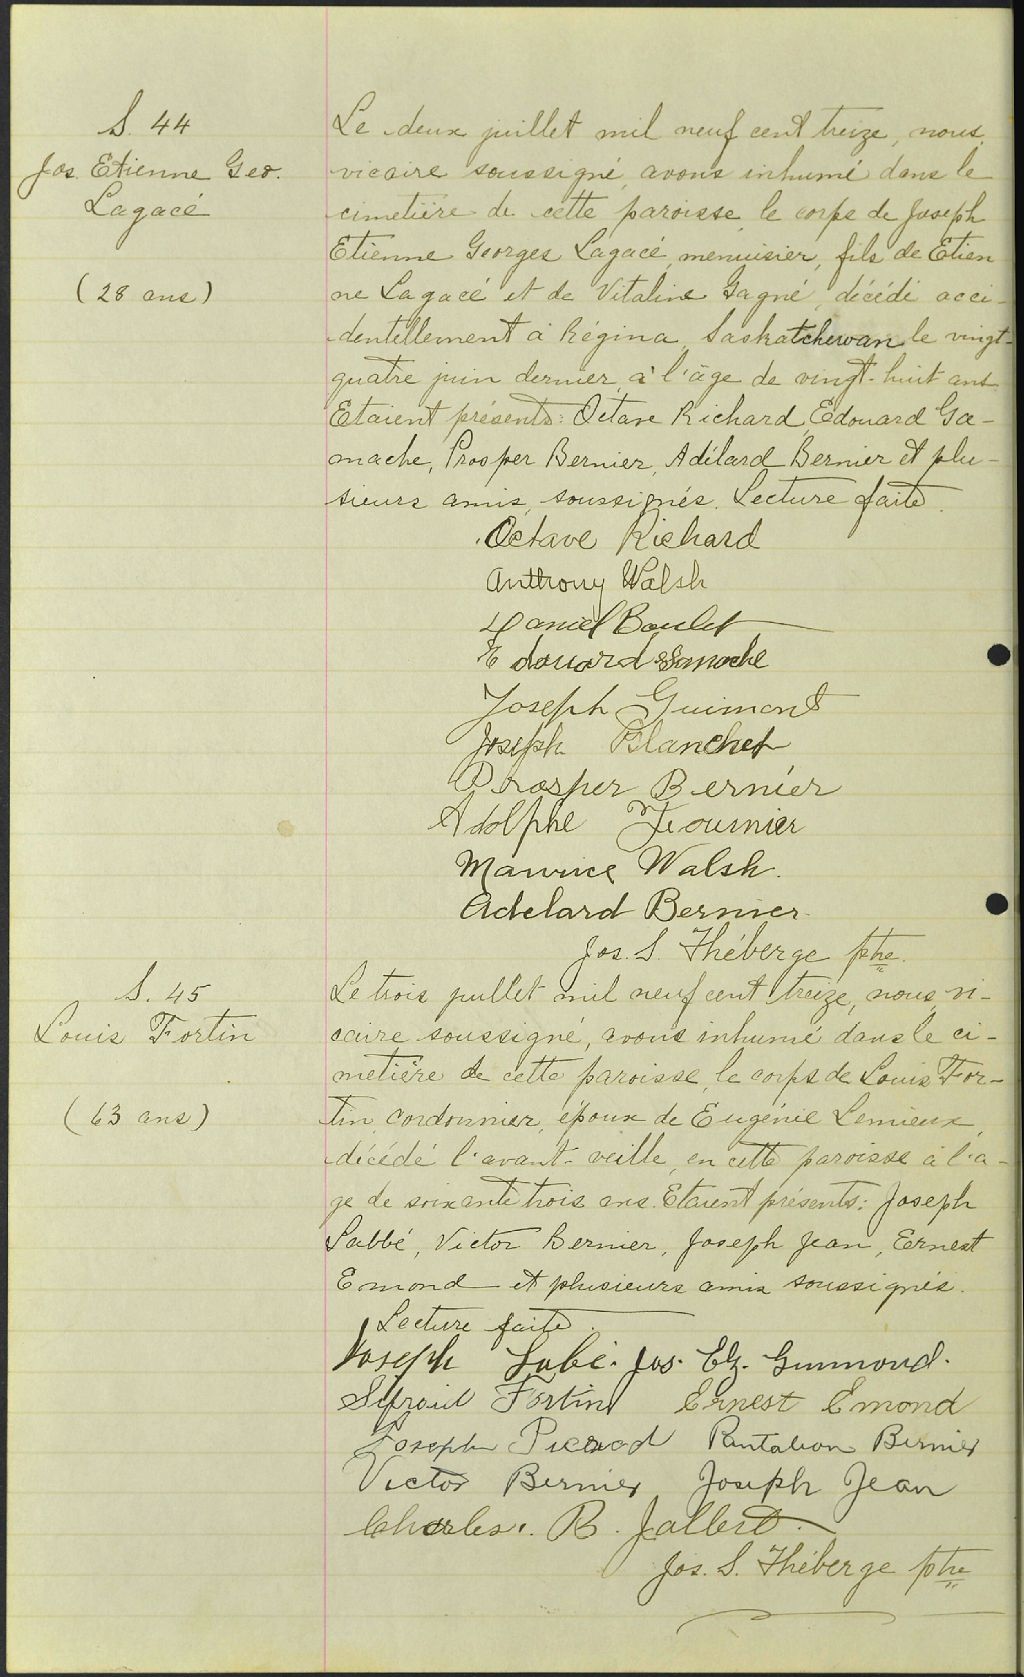 S. 44
Jos. Etienne Geo.
Lagacé
(28 ans)
Le deux juillet mil neuf cent treize, nous,
vicaire soussigné, avons inhumé dans le
cimetière de cette paroisse, le corps de Joseph
Etienne Georges Lagacé, menuisier, fils de Etien
ne Lagacé et de Vitaline Gagné, décédé acci-
dentellement à Régina, Saskatchewan le vingt-
quatre juin dernier, à l'âge de vingt-huit ans.
Etaient présents: Octave Richard, Edouard Ga-
mache, Prosper Bernier, Adélard Bernier et plu-
sieurs amis, soussignés. Lecture faite.
Octave Richard
Anthony Walsh
Daniel Boulet
Edouard Gamache
Joseph Guimont
Joseph Blanchet
Prosper Bernier
Adolphe Fournier
Maurice Walsh.
Adelard Bernier.
Jos. S. Théberge ptre.
S. 45
Louis Fortin
(63 ans)
Le trois juillet mil neuf cent treize, nous, vi-
caire soussigné, avons inhumé dans le ci-
metière de cette paroisse, le corps de Louis For-
tin cordonnier, époux de Eugénie Lemieux,
décédé l'avant-veille, en cette paroisse à l'a-
ge de soixante trois ans. Etaient présents: Joseph
Labbé, Victor Bernier, Joseph Jean, Ernest
Emond et plusieurs amis soussignés.
Lecture faite.
Joseph Labé. Jos. Elz. Guimond.
Fortin Ernest Emond
Joseph Pantaleon Bernier
Victor Bernier Joseph Jean
Charles. B. Jalbert.
Jos. S. Théberge ptre